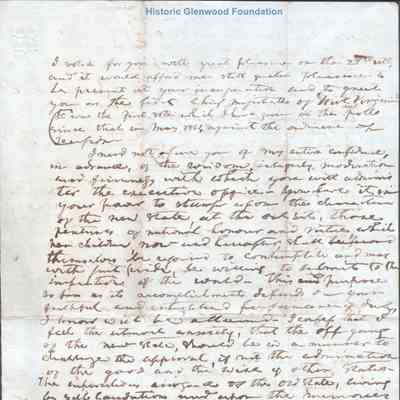 Historic Glenwood Foundation
I voted for you with great pleasure on the 28th ult,
and it would afford me still greater pleasure to
be present at your inauguration and to greet
you as the first Chief Magistrate of West Virginia
(It was the first vote which I have given at the polls
since that in May 1861, against the ordinance of
Secession
I need not assure you of my entire confidence,
in advance, of the wisdom, integrity, moderation
and firmness with which you will adminis
ter the executive office. You have it in
your power to stamp upon the character
of the new State, at the outset, those
features of national honour and virtue which
her children now and hereafter shall
themselves be required to contemplate and may
with just pride, be willing to submit to the
inspection of the world. This purpose
so far as its accomplishment depends on your
faithful and enlightened performance of duty,
I know will be attained. I confess that I
feel the utmost anxiety, that the off going
of the new State, should be in a manner to
challenge the approval, if not the admiration
of the good and the wise of other States
the of the old State, living
by self and upon the memories